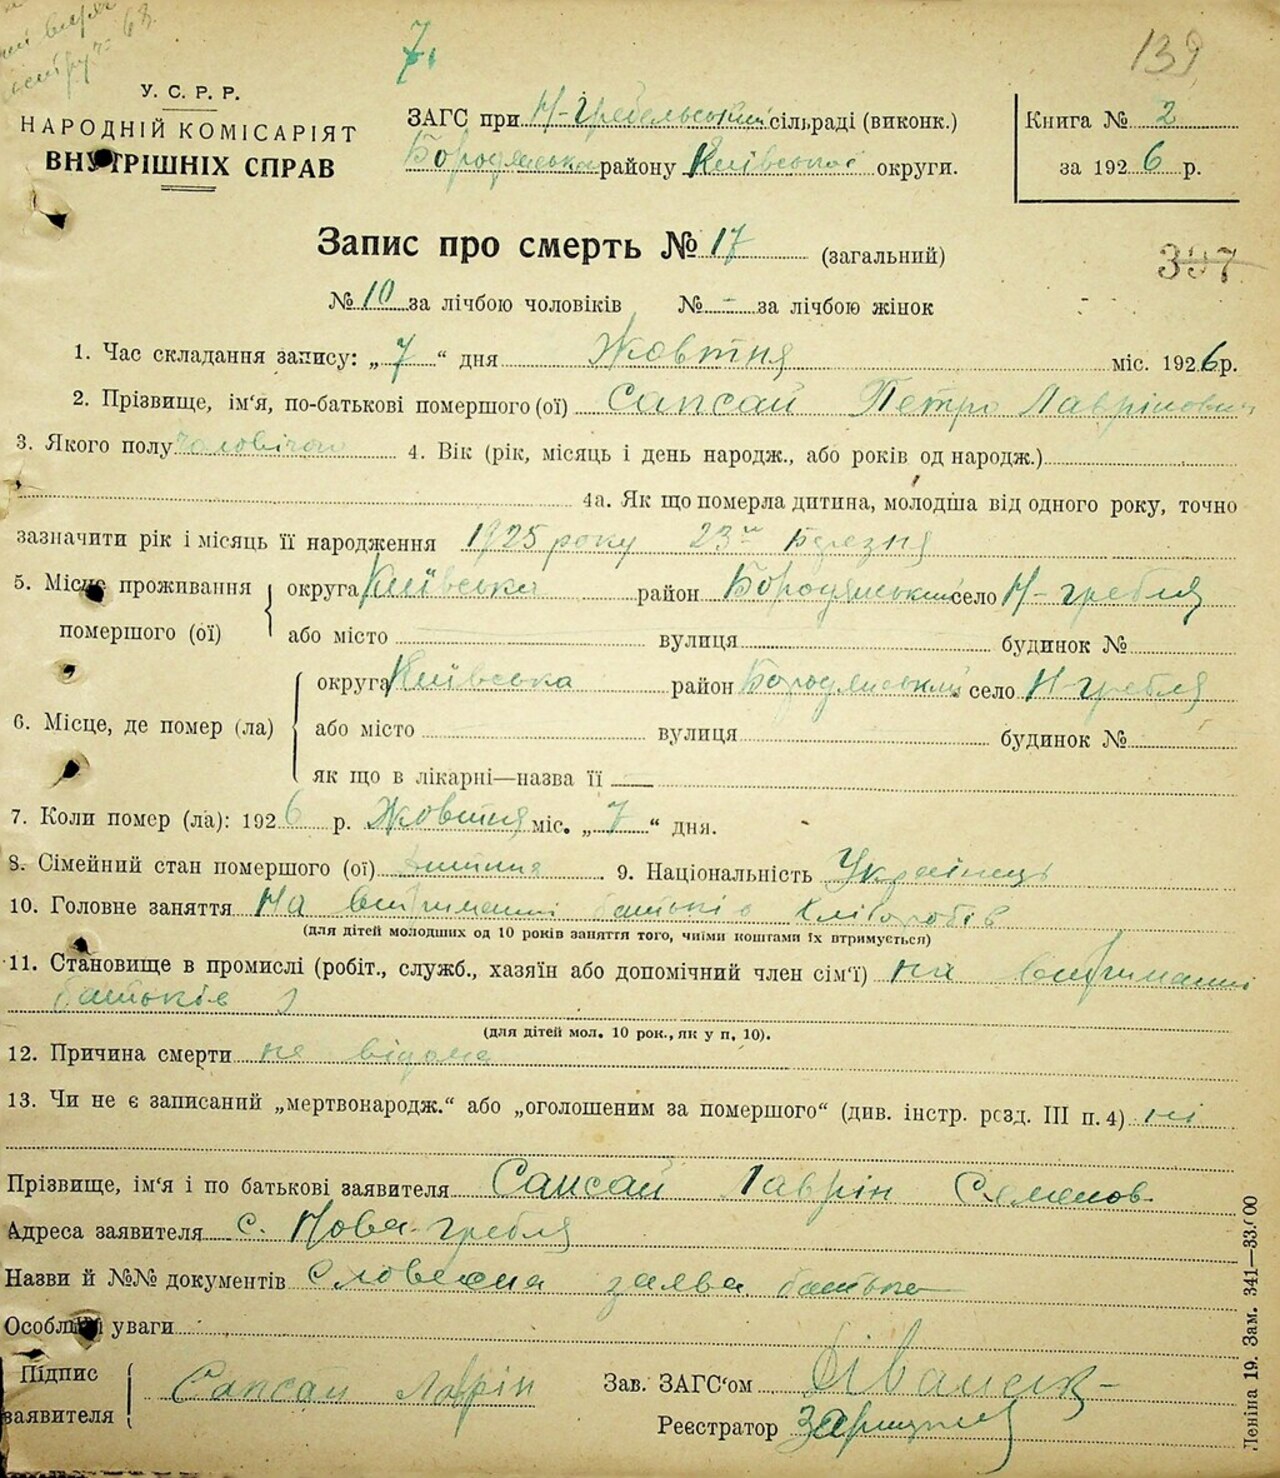 7.
139
У. С. Р. Р.
НАРОДНІЙ КОМІСАРІЯТ
ВНУТРІШНІХ СПРАВ
ЗАГС при Н-Гребельський сільраді (виконк.)
Бородянськ району Київської округи.
Книга № 2
за 1926 р.
Запис про смерть № 17 (загальний)
397
№ 10 за лічбою чоловіків № - за лічбою жінок
1. Час складання запису: „7“ дня Жовтня міс. 1926 р.
2. Прізвище, ім‘я, по-батькові помершого (ої) Сапсай Петро Лаврінович
3. Якого полу чоловічого 4. Вік (рік, місяць і день народж., або років од народж.)
4а. Як що померла дитина, молодша від одного року, точно
зазначити рік і місяць її народження 1925 року 23го Березня
5. Місце проживання помершого (ої)
округа Київська район Бородянський село Н-гребля
або місто вулиця будинок №
6. Місце, де помер (ла)
округа Київська район Бородянський село Н-гребля
або місто вулиця будинок №
як що в лікарні—назва її
7. Коли помер (ла): 1926 р. Жовтня міс. „7“ дня.
8. Сімейний стан помершого (ої) дитина 9. Національність Українець
10. Головне заняття На витриманні батьків хліборобів
(для дітей молодших од 10 років заняття того, чиїми коштами їх втримується)
11. Становище в промислі (робіт., служб., хазяїн або допомічний член сім‘ї) на витриманні
батьків
(для дітей мол. 10 рок., як у п. 10).
12. Причина смерти не відома
13. Чи не є записаний „мертвонародж.“ або „оголошеним за помершого“ (див. інстр. розд. III п. 4) ні
Прізвище, ім‘я і по батькові заявителя Сапсай Лаврін Семенов-
Адреса заявителя с. Нова-гребля
Назви й №№ документів Словесна заява батька
Особливі уваги
Підпис заявителя Сапсай Лаврін
Зав. ЗАГС‘ом
Реєстратор
Леніна 19. Зам. 341—33.000